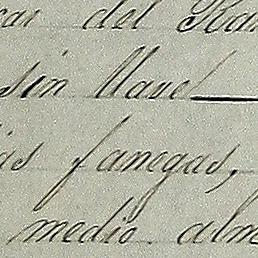 car del Ra
sin llave
as fanegas,
medio alm